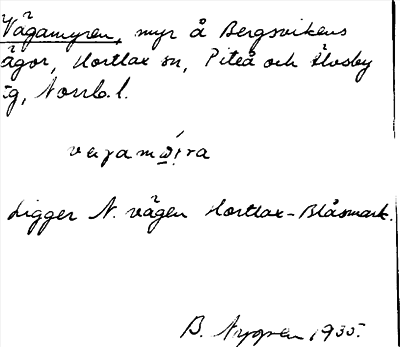 Vägamyren, myr å Bergsvikens
ägor, Hortlax sn, Piteå och Älvsby
tg, Norrb. l.
Ligger N. vägen Hortlax-Blåsmark.
B. Nygren 1935.